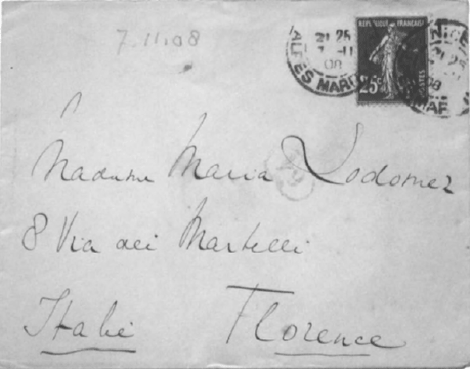 7.11.08
REPUBLIQUE FRANÇAISE
21 25
7 -11
08
ALPES MARIT
25c
POSTES
Madame Maria Lodomez
8 Via dei Martelli
Italie Florence